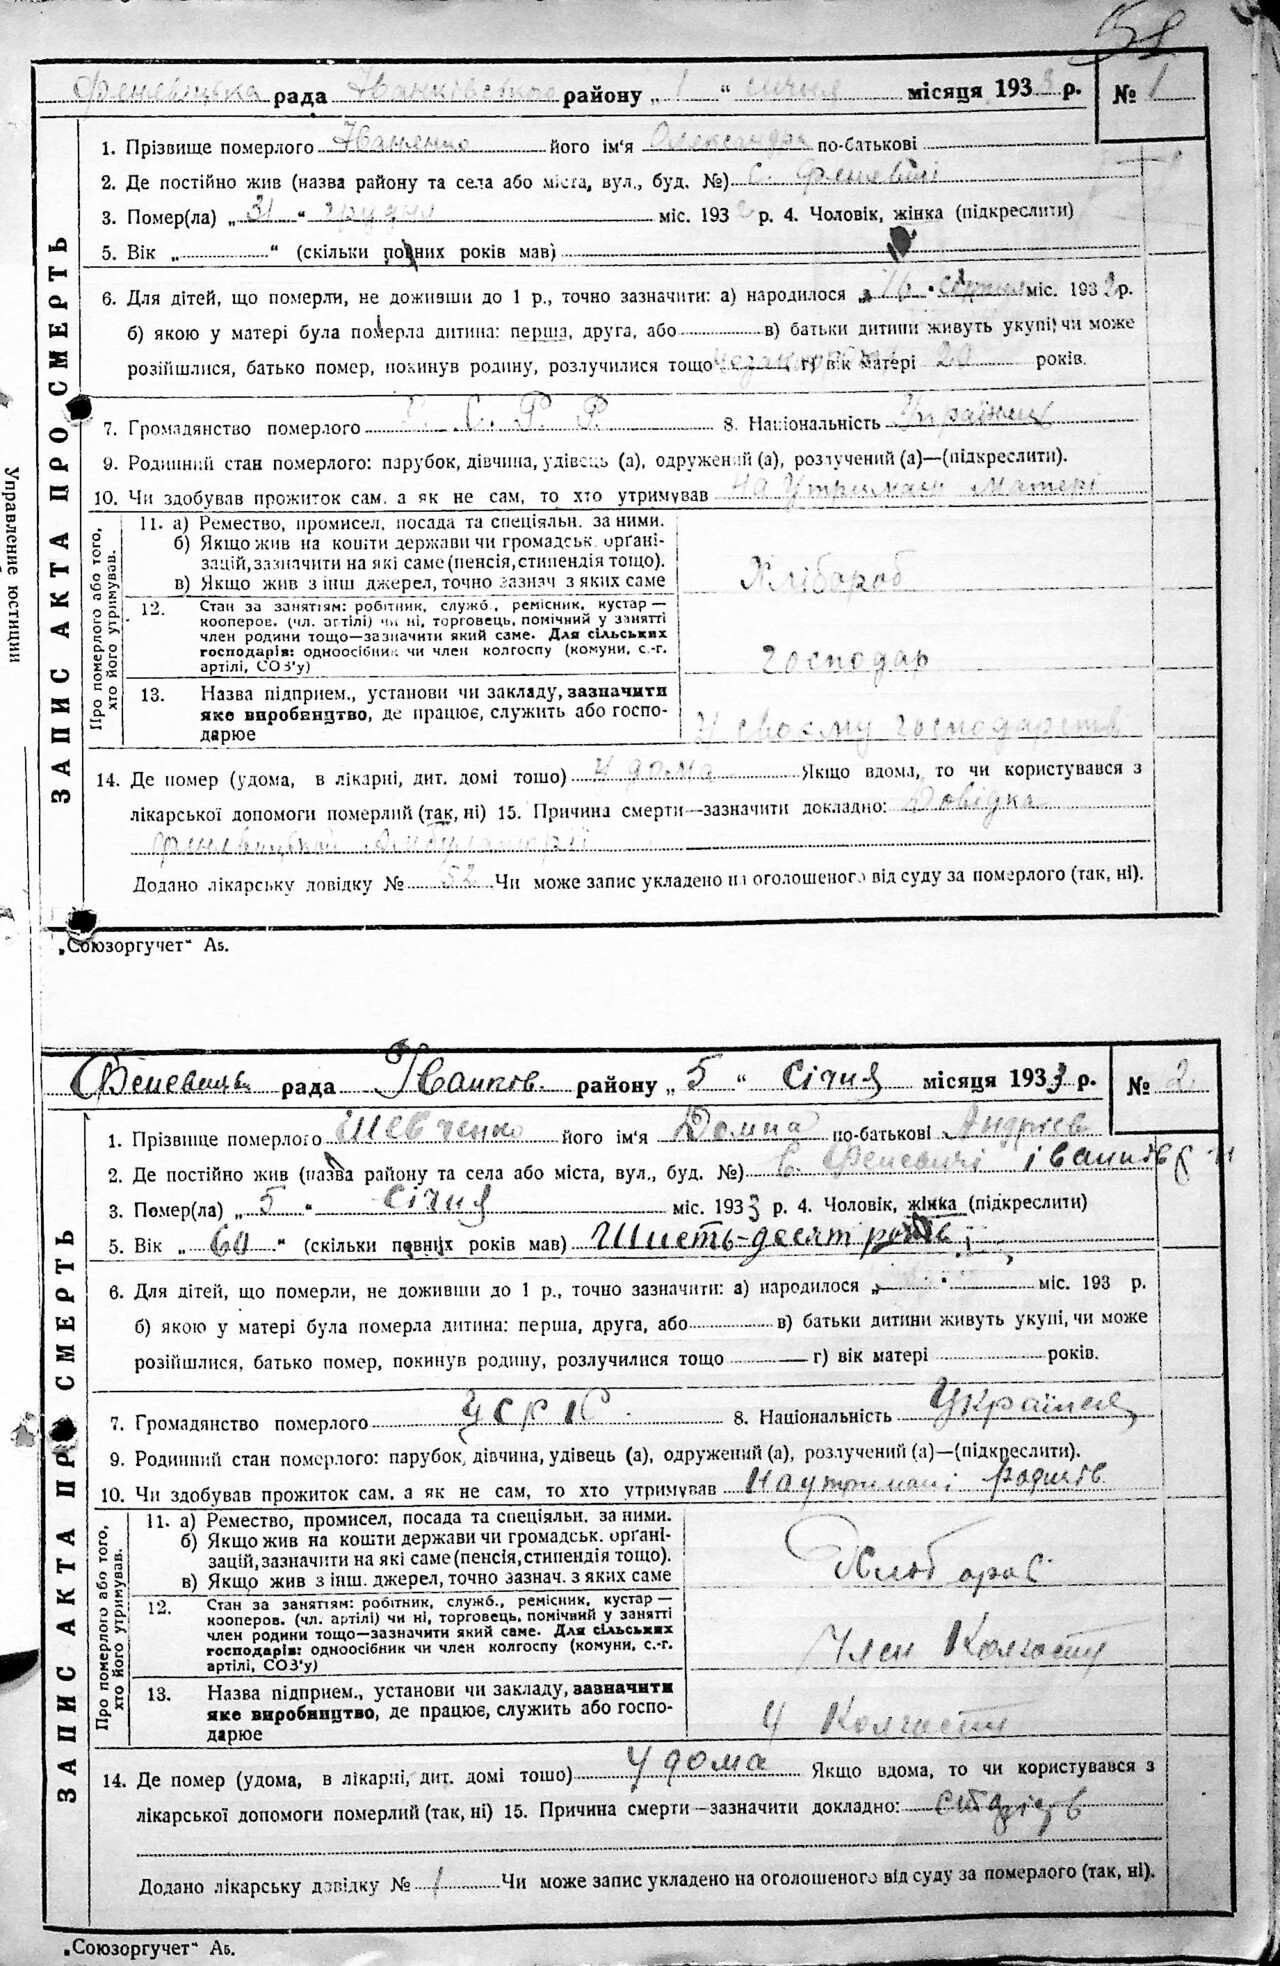 58
Феневицька рада Іванківського району „ 1 “ січня місяця 1933 р. № 1
1. Прізвище померлого Іваненко його ім'я Олександр по-батькові
2. Де постійно жив (назва району та села або міста, вул., буд. №) с. Феневичі
3. Помер(ла) „ 31 “ грудня міс. 1932 р. 4. Чоловік, жінка (підкреслити)
5. Вік „ “ (скільки повних років мав)
6. Для дітей, що померли, не доживши до 1 р., точно зазначити: а) народилося „ 16 “ міс. 1932 р.
б) якою у матері була померла дитина: перша, друга, або в) батьки дитини живуть укупі, чи може
розійшлися, батько помер, покинув родину, розлучилися тощо г) вік матері 20 років.
7. Громадянство померлого С. Р. Р. 8. Національність Українец
9. Родинний стан померлого: парубок, дівчина, удівець (а), одружений (а), розлучений (а)—(підкреслити).
10. Чи здобував прожиток сам, а як не сам, то хто утримував На утримані матері
11. а) Ремество, промисел, посада та спеціяльн. за ними.
б) Якщо жив на кошти держави чи громадськ. органі-
зацій, зазначити на які саме (пенсія, стипендія тощо).
в) Якщо жив з інш джерел, точно зазнач з яких саме
Хлібороб
12. Стан за занятіям: робітник, служб., ремісник, кустар —
кооперов. (чл. артілі) чи ні, торговець, помічний у занятті
член родини тощо—зазначити який саме. Для сільських
господарів: одноосібник чи член колгоспу (комуни, с.-г.
артілі, СОЗ'у)
Господар
13. Назва підприєм., установи чи закладу, зазначити
яке виробництво, де працює, служить або госпо-
дарює
У своєму господарстві
Про померлого або того,
хто його утримував.
14. Де помер (удома, в лікарні, дит. домі тощо) у дома Якщо вдома, то чи користувався з
лікарської допомоги померлий (так, ні) 15. Причина смерти—зазначити докладно: Довідка
Феневицької Амбулаторії
Додано лікарську довідку № 52 Чи може запис укладено на оголошеного від суду за померлого (так, ні).
ЗАПИС АКТА ПРО СМЕРТЬ
„Союзоргучет“ Аб.
Управление юстиции
Феневицьк рада Іванків. району „ 5 “ Січня місяця 1933 р. № 2
1. Прізвище померлого Шевченко його ім'я Домна по-батькові Андрієв
2. Де постійно жив (назва району та села або міста, вул., буд. №) с. Феневичі Іванків
3. Помер(ла) „ 5 “ Січня міс. 1933 р. 4. Чоловік, жінка (підкреслити)
5. Вік „ 60 “ (скільки повних років мав) Шисть-десят років
6. Для дітей, що померли, не доживши до 1 р., точно зазначити: а) народилося „ “ міс. 193 р.
б) якою у матері була померла дитина: перша, друга, або в) батьки дитини живуть укупі, чи може
розійшлися, батько помер, покинув родину, розлучилися тощо г) вік матері років.
7. Громадянство померлого 8. Національність Українка
9. Родинний стан померлого: парубок, дівчина, удівець (а), одружений (а), розлучений (а)—(підкреслити).
10. Чи здобував прожиток сам, а як не сам, то хто утримував На утримані родичів
11. а) Ремество, промисел, посада та спеціяльн. за ними.
б) Якщо жив на кошти держави чи громадськ. органі-
зацій, зазначити на які саме (пенсія, стипендія тощо).
в) Якщо жив з інш. джерел, точно зазнач. з яких саме
Хлібороб
12. Стан за занятіям: робітник, служб., ремісник, кустар —
кооперов. (чл. артілі) чи ні, торговець, помічний у занятті
член родини тощо—зазначити який саме. Для сільських
господарів: одноосібник чи член колгоспу (комуни, с.-г.
артілі, СОЗ'у)
Член Колгоспу
13. Назва підприєм., установи чи закладу, зазначити
яке виробництво, де працює, служить або госпо-
дарює
У Колгоспі
Про померлого або того,
хто його утримував.
14. Де помер (удома, в лікарні, дит. домі тошо) у дома Якщо вдома, то чи користувався з
лікарської допомоги померлий (так, ні) 15. Причина смерти—зазначити докладно:
Додано лікарську довідку № 1 Чи може запис укладено на оголошеного від суду за померлого (так, ні).
ЗАПИС АКТА ПРО СМЕРТЬ
„Союзоргучет“ Аб.